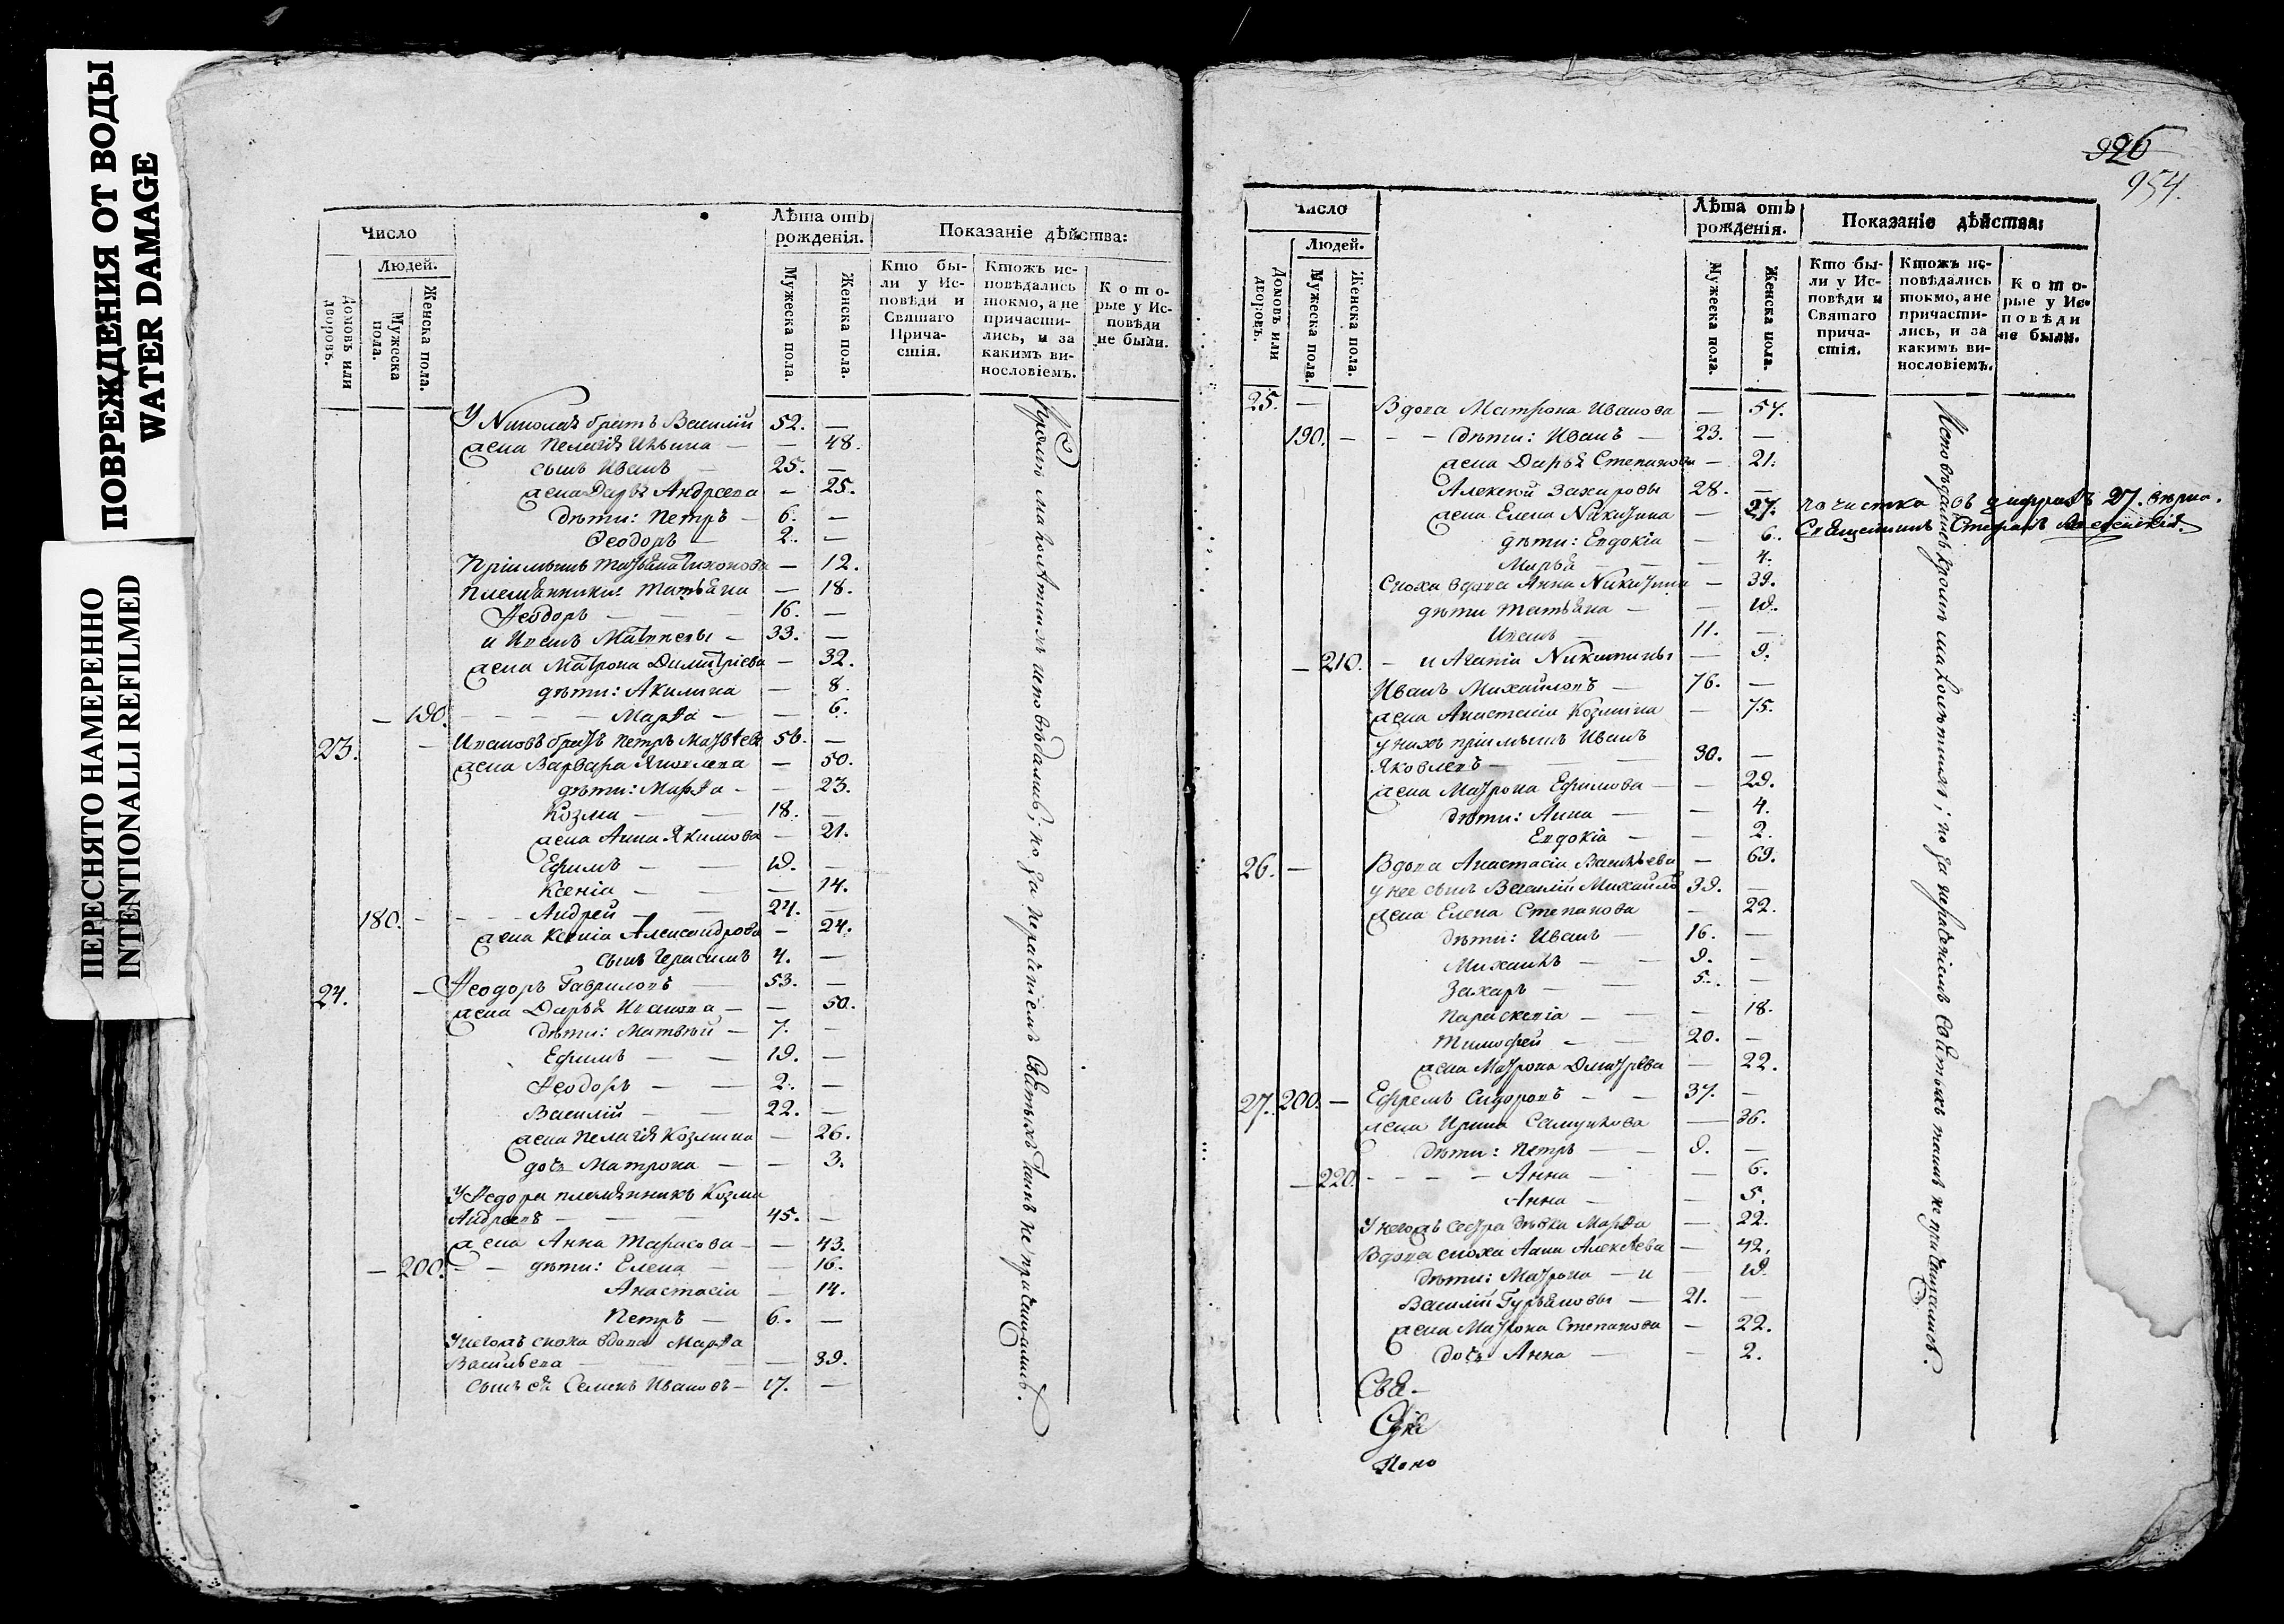 ПОВРЕЖДЕНИЯ ОТ ВОДЫ
WATER DAMAGE
ПЕРЕСНЯТО НАМЕРЕННО
INTENTIONALLI REFILMED
Число
Людей.
Домовъ или дворовъ.
Мужеска пола.
Женска пола.
Лѣта отъ рожденія.
Мужеска пола.
Женска пола.
Показаніе дѣйства:
Кто бы-
ли у Ис-
повѣди и
Святаго
Прича-
стія.
Ктожъ ис-
повѣдались
токмо, а не
причасти-
лись, и за
какимъ ви-
нословіемъ.
Кото-
рые у Ис-
повѣди
не были.
У Николая братъ Василій 52. —
жена Пелагія Ильина — — 48.
сынъ Иванъ — 25. —
жена Дарья Андреева — 25.
дѣти: Петръ — 6. —
Ѳеодоръ — 2. —
Пріимышъ Татьяна Тихонова — 12.
племянники: Татьяна — 18.
Ѳеодоръ — 16. —
и Иванъ Матвеевы — 33. —
жена Матрона Димитріева — 32.
дѣти: Акилина — 8.
— 190. — Марѳа — — 6.
23. — Ивановъ братъ Петръ Матвѣевъ 56. —
жена Варвара Яковлева — 50.
дѣти: Марѳа — — 23.
Козма — 18. —
жена Анна Якимова — 21.
Ефимъ — 19. —
Ксенія — — 14.
180. — Андрей — 24. —
жена Ксенія Александрова — 24.
сынъ Герасимъ 4. —
24. — Ѳеодоръ Гавриловъ 53. —
жена Дарья Иванова — — 50.
дѣти: Матвѣй — 7. —
Ефимъ — 19. —
Ѳеодоръ — 2. —
Василій — 22. —
жена Пелагія Козмина — 26.
дочь Матрона — — 3.
У Ѳедора племянникъ Козма
Андреевъ — 45. —
жена Анна Тарасова — — 43.
— 200. — дѣти: Елена — — 16.
Анастасія — 14.
Петръ — 6. —
У негожъ сноха вдова Марѳа
Васильева — — 39.
сынъ ея Семенъ Ивановъ — 17. —
Кромѣ малолѣтнихъ исповѣдались; но за нераченіемъ Святыхъ таинъ не причащались.
926
954.
Число
Людей.
Домовъ или дворовъ.
Мужеска пола.
Женска пола.
Лѣта отъ рожденія.
Мужеска пола.
Женска пола.
Показаніе дѣйства:
Кто бы-
ли у Ис-
повѣди и
Святаго
прича-
стія.
Ктожъ ис-
повѣдались
токмо, а не
причасти-
лись, и за
какимъ ви-
нословіемъ.
Кото-
рые у Ис-
повѣди
не были.
25. — Вдова Матрона Иванова — 57.
190. — — дѣти: Иванъ — 23. —
жена Дарья Степанова — 21.
Алексѣй Захаровы 28. —
жена Елена Никитина — 27. почистка въ цифрахъ 27. вѣрна.
дѣти: Евдокія — 6. Священникъ Стефанъ
Марья — — 4.
Сноха вдова Анна Никитина — 39.
дѣти Татьяна — — 19.
Иванъ — 11. —
— 210. — и Агапія Никитины — 9.
Иванъ Михайловъ — 76. —
жена Анастасія Козмина — 75.
у нихъ пріимышъ Иванъ
Яковлевъ — 30. —
жена Матрона Ефимова — — 29.
дѣти: Анна — — 4.
Евдокія — — 2.
26. — Вдова Анастасія Васильева — 69.
у нее сынъ Василій Михайлов 39. —
жена Елена Степанова — 22.
дѣти: Иванъ — 16. —
Михаилъ — 9. —
Захаръ — 5. —
Параскевія — — 18.
Тимофей — 20. —
жена Матрона Дмитрѣва — 22.
27. 200. — Ефремъ Сидоровъ — 37. —
жена Ирина Самуилова — 36.
дѣти: Петръ — 9. —
— 220. — Анна — — 6.
Анна — — 5.
У негожъ сестра дѣвка Марѳа — 22.
Вдова сноха Анна Алексѣева — 42.
дѣти: Матрона — и — 19.
Василій Гурьяновы — 21. —
жена Матрона Степанова — 22.
дочь Анна — — 2.
Исповѣдались кромѣ малолѣтнихъ; но за нераченіемъ Святыхъ таинъ не причащались.
Свя-
Поно